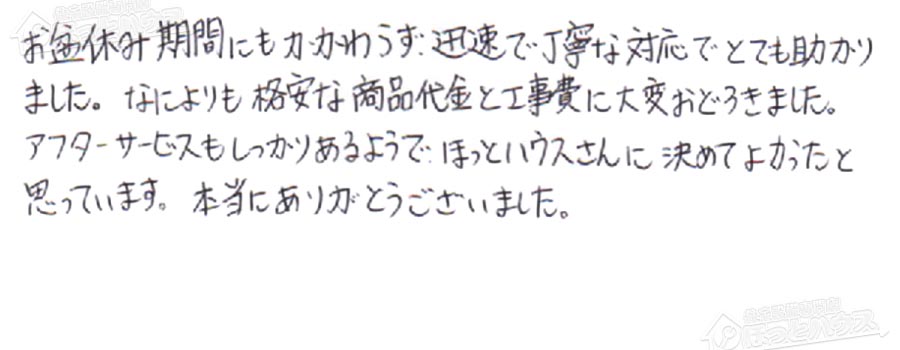 お盆休み期間にもかかわらず迅速で丁寧な対応でとても助かり
ました。なによりも格安な商品代金と工事費に大変おどろきました。
アフターサービスもしっかりあるようで ほっとハウスさんに決めてよかったと
思っています。本当にありがとうございました。
ほっとハウス